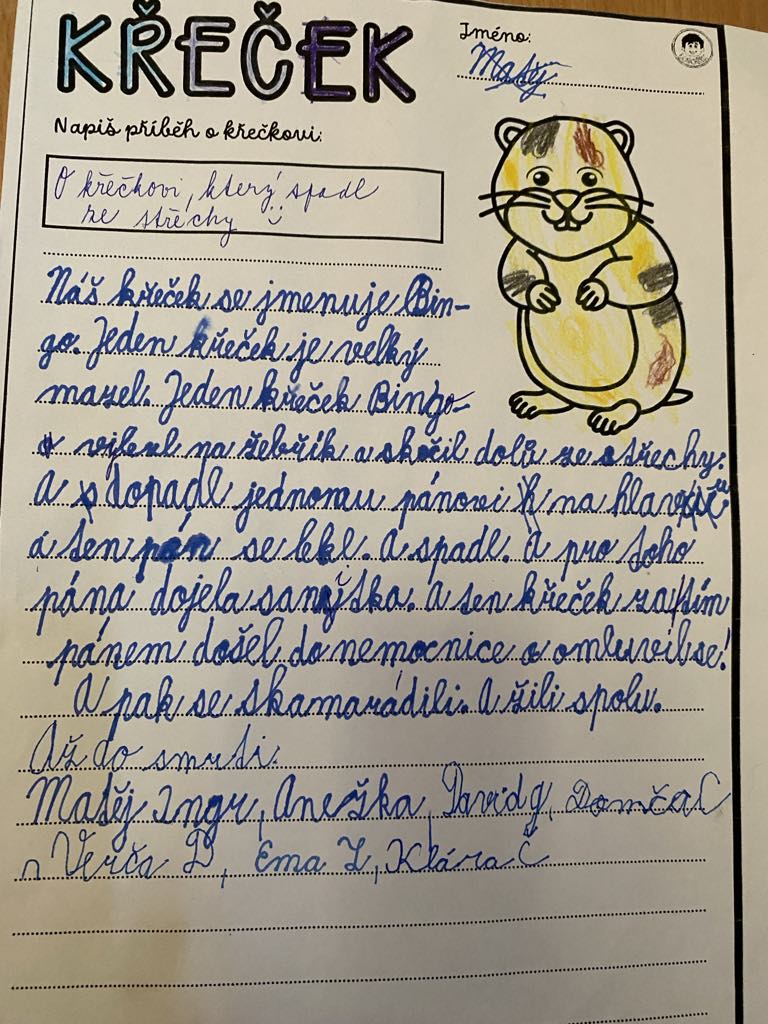 KŘEČEK
Jméno:
Matěj
Napiš příběh o křečkovi:
O křečkovi, který spadl
ze střechy :)
Náš křeček se jmenuje Bin-
go. Jeden křeček je velký
mazel. Jeden křeček Bingo
vylezl na žebřík a skočil dolů ze střechy.
A dopadl jednomu pánovi na hlavu
a ten pán se lekl. A spadl. A pro toho
pána dojela sanitka. A ten křeček za tím
pánem došel do nemocnice a omluvil se!
A pak se skamarádili. A žili spolu.
Až do smrti.
Matěj Ingr, Anežka, David G, Domča C
Verča D, Ema Z, Klára Č